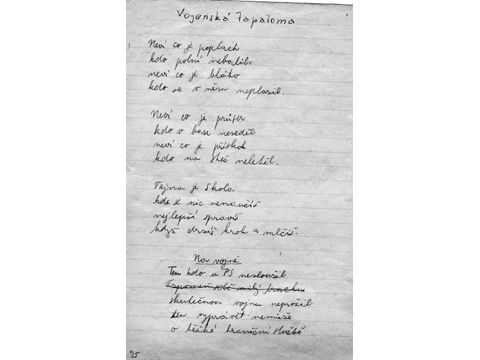 Vojenská Lapaloma
Neví co je poplach
kdo polní nebalil
neví co je bláto
kdo se v něm neplazil.
Neví co je průser
kdo v base neseděl
neví co je přískok
kdo na steč neletěl.
Fajna je škola
kde z nic nenaučíš
nejlepší spravíš
když držíš krok a mlčíš.
Na vojně
Ten kdo u PS nesloužil
Zapomeň milý brachu
skutečnou vojnu neprožil
ten vyprávět nemůže
o těžké hraniční službě
25